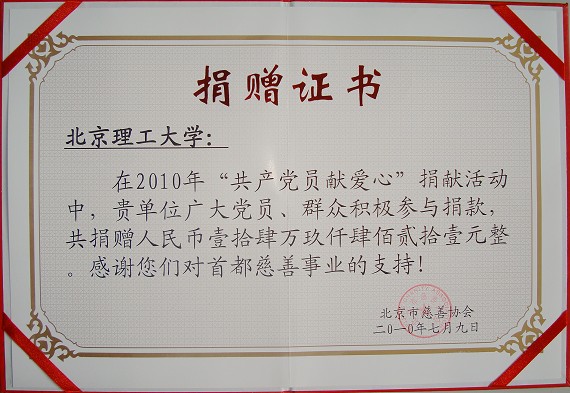 捐赠证书
北京理工大学：
在2010年“共产党员献爱心”捐献活动
中，贵单位广大党员、群众积极参与捐款，
共捐赠人民币壹拾肆万玖仟肆佰贰拾壹元整
。感谢您们对首都慈善事业的支持！
北京市慈善协会
二〇一〇年七月九日